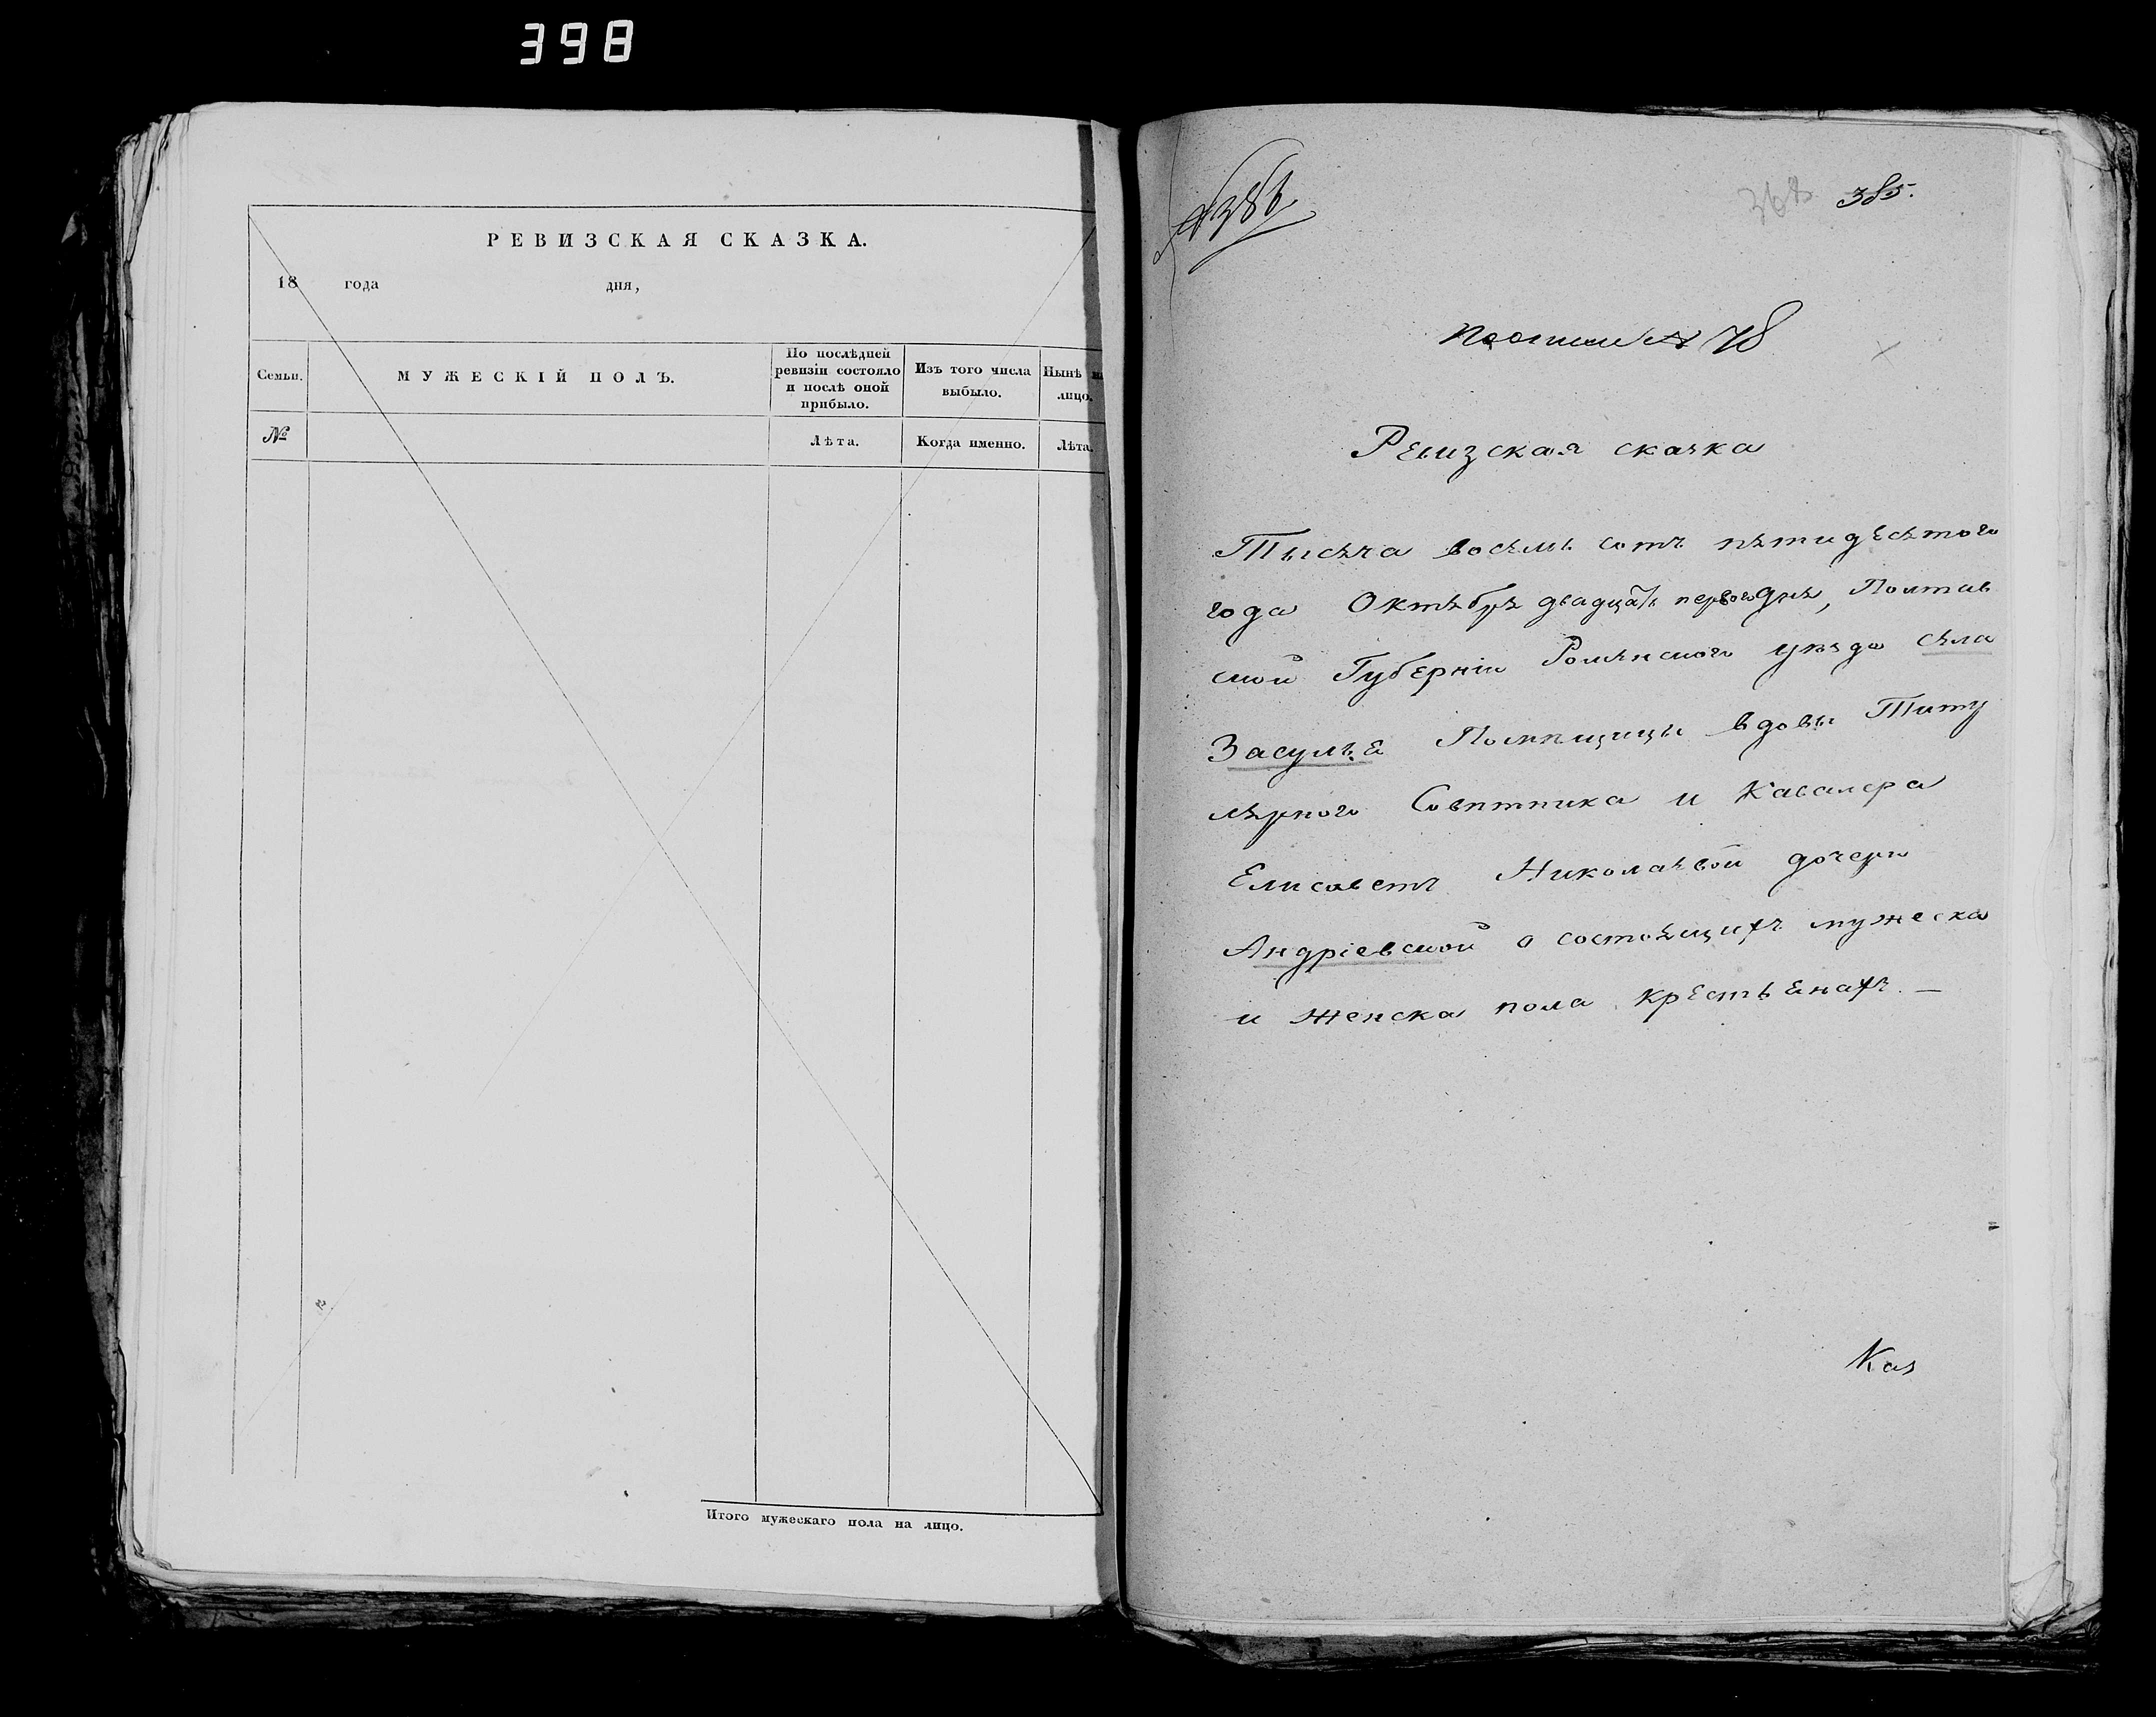 398
РЕВИЗСКАЯ СКАЗКА.
18 года дня,
Семьи.
МУЖЕСКІЙ ПОЛЪ.
По послѣдней
ревизіи состояло
и послѣ оной
прибыло.
Изъ того числа
выбыло.
Нынѣ на
лицо.
№
Лѣта.
Когда именно.
Лѣта.
Итого мужескаго пола на лицо.
368 385.
По описи № 78
Ревизская сказка
Тысяча восемь сотъ пятидесятого
года Октября двадцать первого дня, Полтав
ской Губерніи Роменского уѣзда села
Засулья Помѣщицы вдовы Титу
лярного Совѣтника и Кавалера
Елисаветъ Николаевой дочери
Андріевской о состоящихъ мужеска
и женска пола крестьянахъ. —
Каз